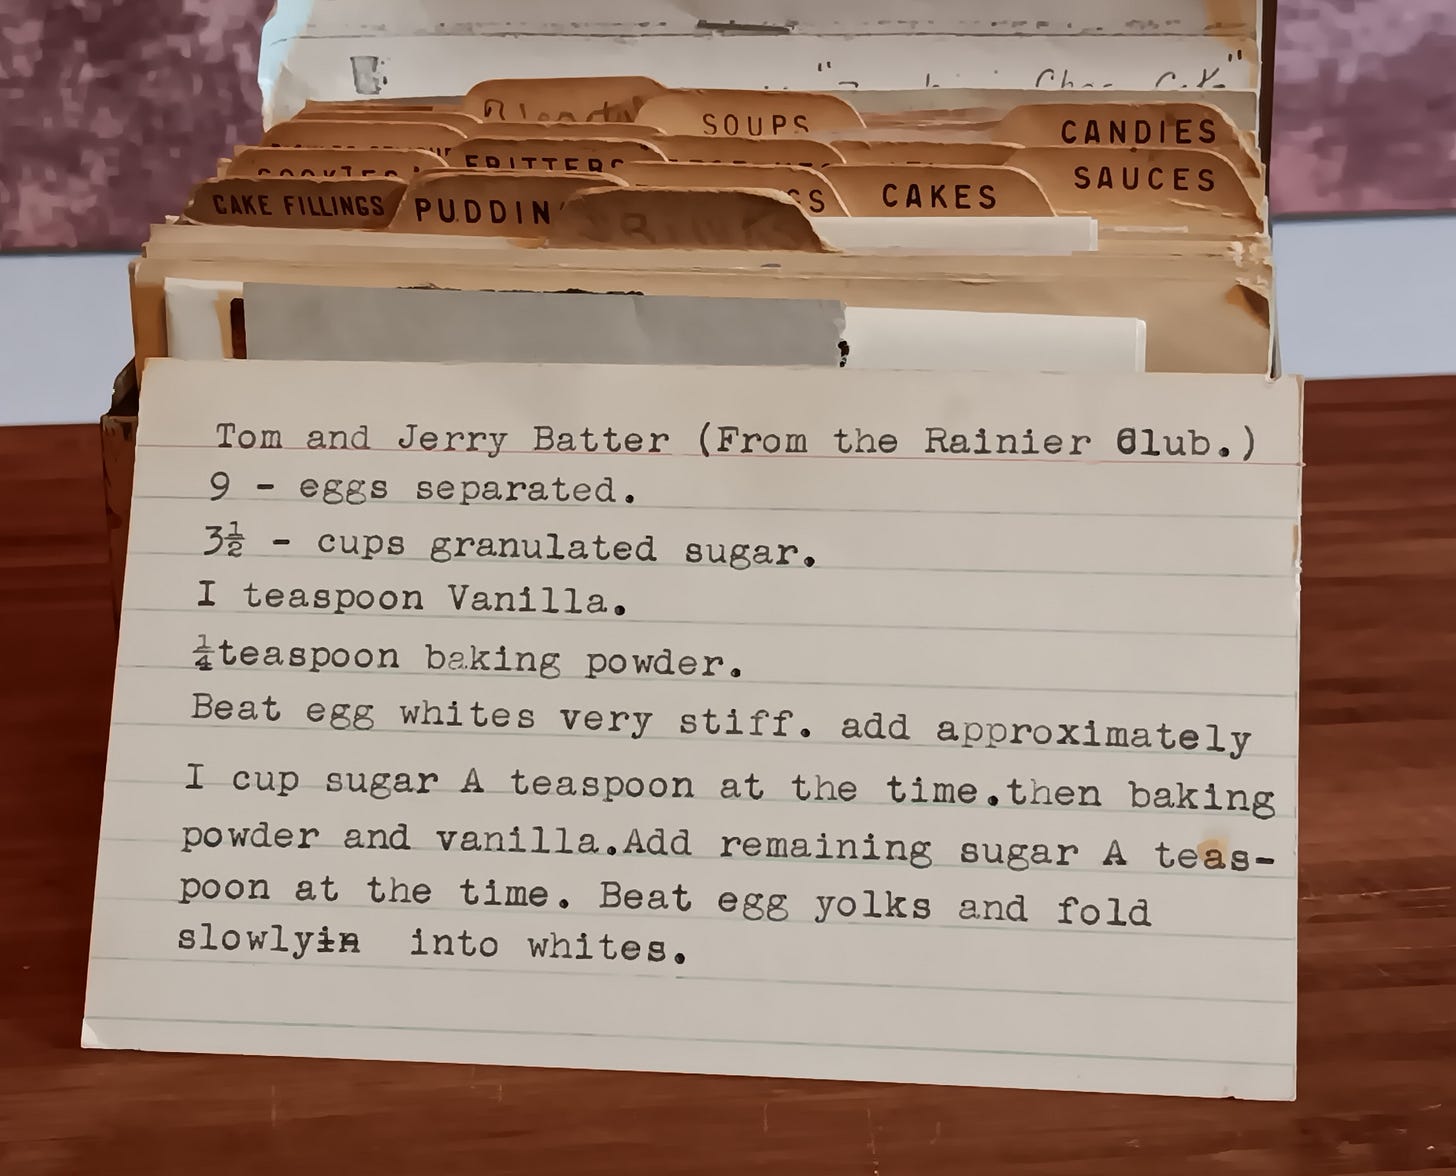 SOUPS
CANDIES
FRITTERS
SAUCES
CAKE FILLINGS
PUDDIN
CAKES
DRINKS
Tom and Jerry Batter (From the Rainier Club.)
9 - eggs separated.
3½ - cups granulated sugar.
I teaspoon Vanilla.
¼teaspoon baking powder.
Beat egg whites very stiff. add approximately
I cup sugar A teaspoon at the time.then baking
powder and vanilla.Add remaining sugar A teas-
poon at the time. Beat egg yolks and fold
slowlyin into whites.